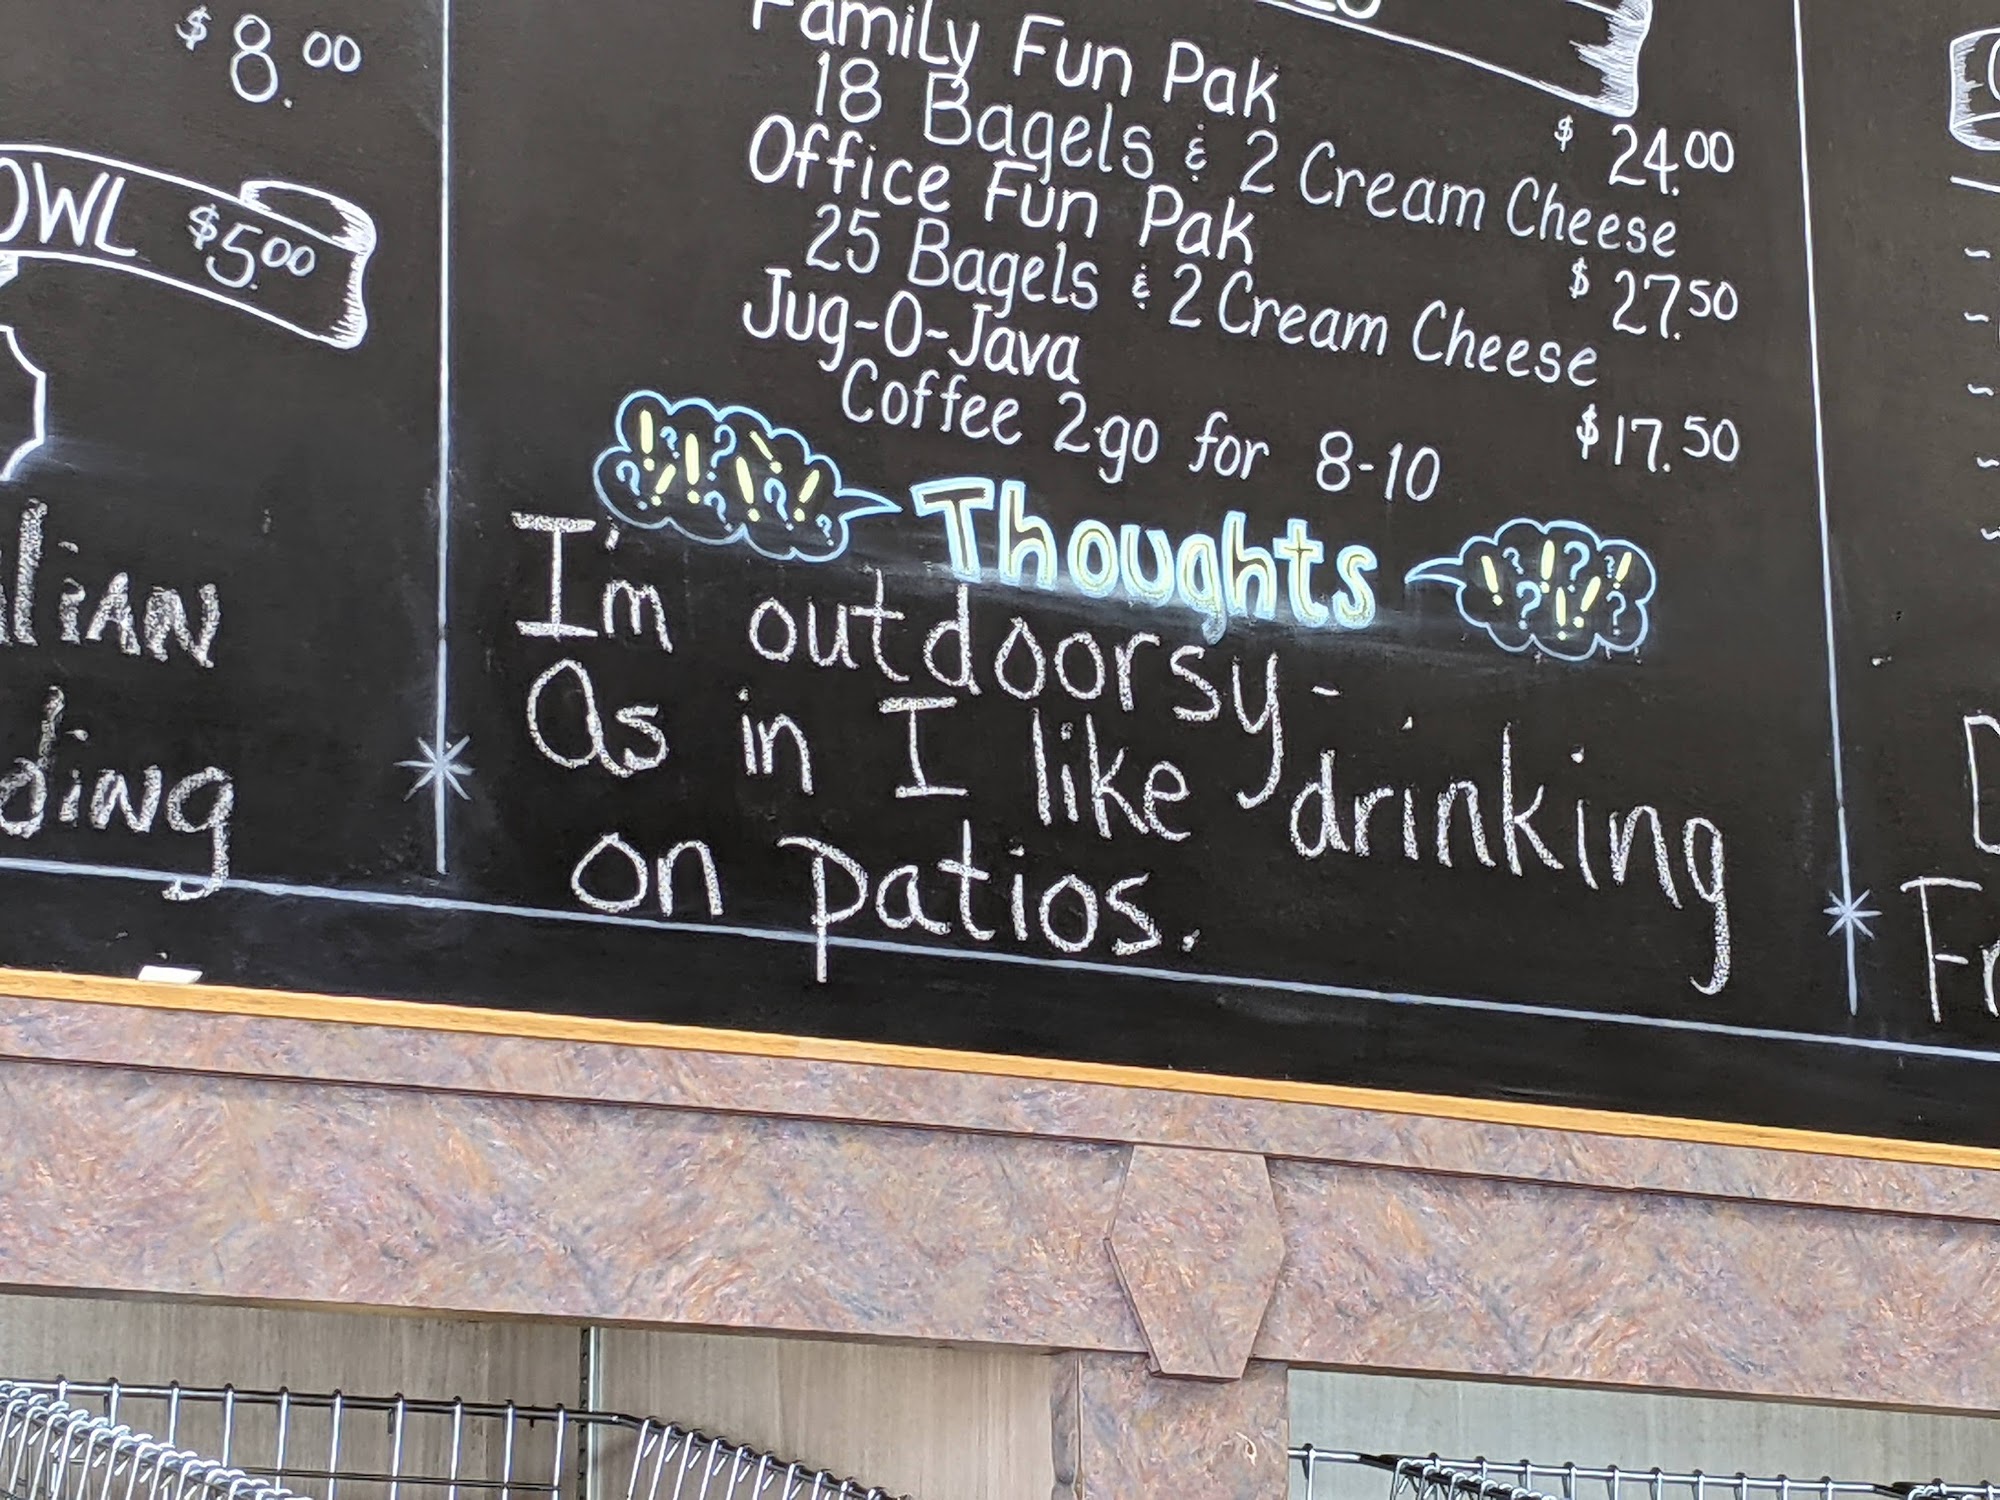 $8.00
$5.00
Family Fun Pak
$24.00
18 Bagels & 2 Cream Cheese
Office Fun Pak
$27.50
25 Bagels & 2 Cream Cheese
Jug-O-Java
$17.50
Coffee 2go for 8-10
Thoughts
I'm outdoorsy-
As in I like drinking
on patios.